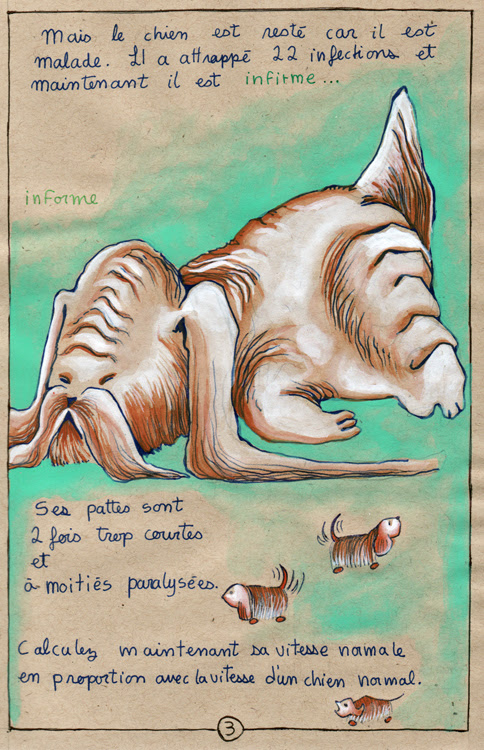 Mais le chien est resté car il est
malade. Il a attrappé 22 infections et
maintenant il est infirme...
informe
Ses pattes sont
2 fois trop courtes
et
à moitiés paralysées.
Calculez maintenant sa vitesse normale
en proportion avec la vitesse d'un chien normal.
3